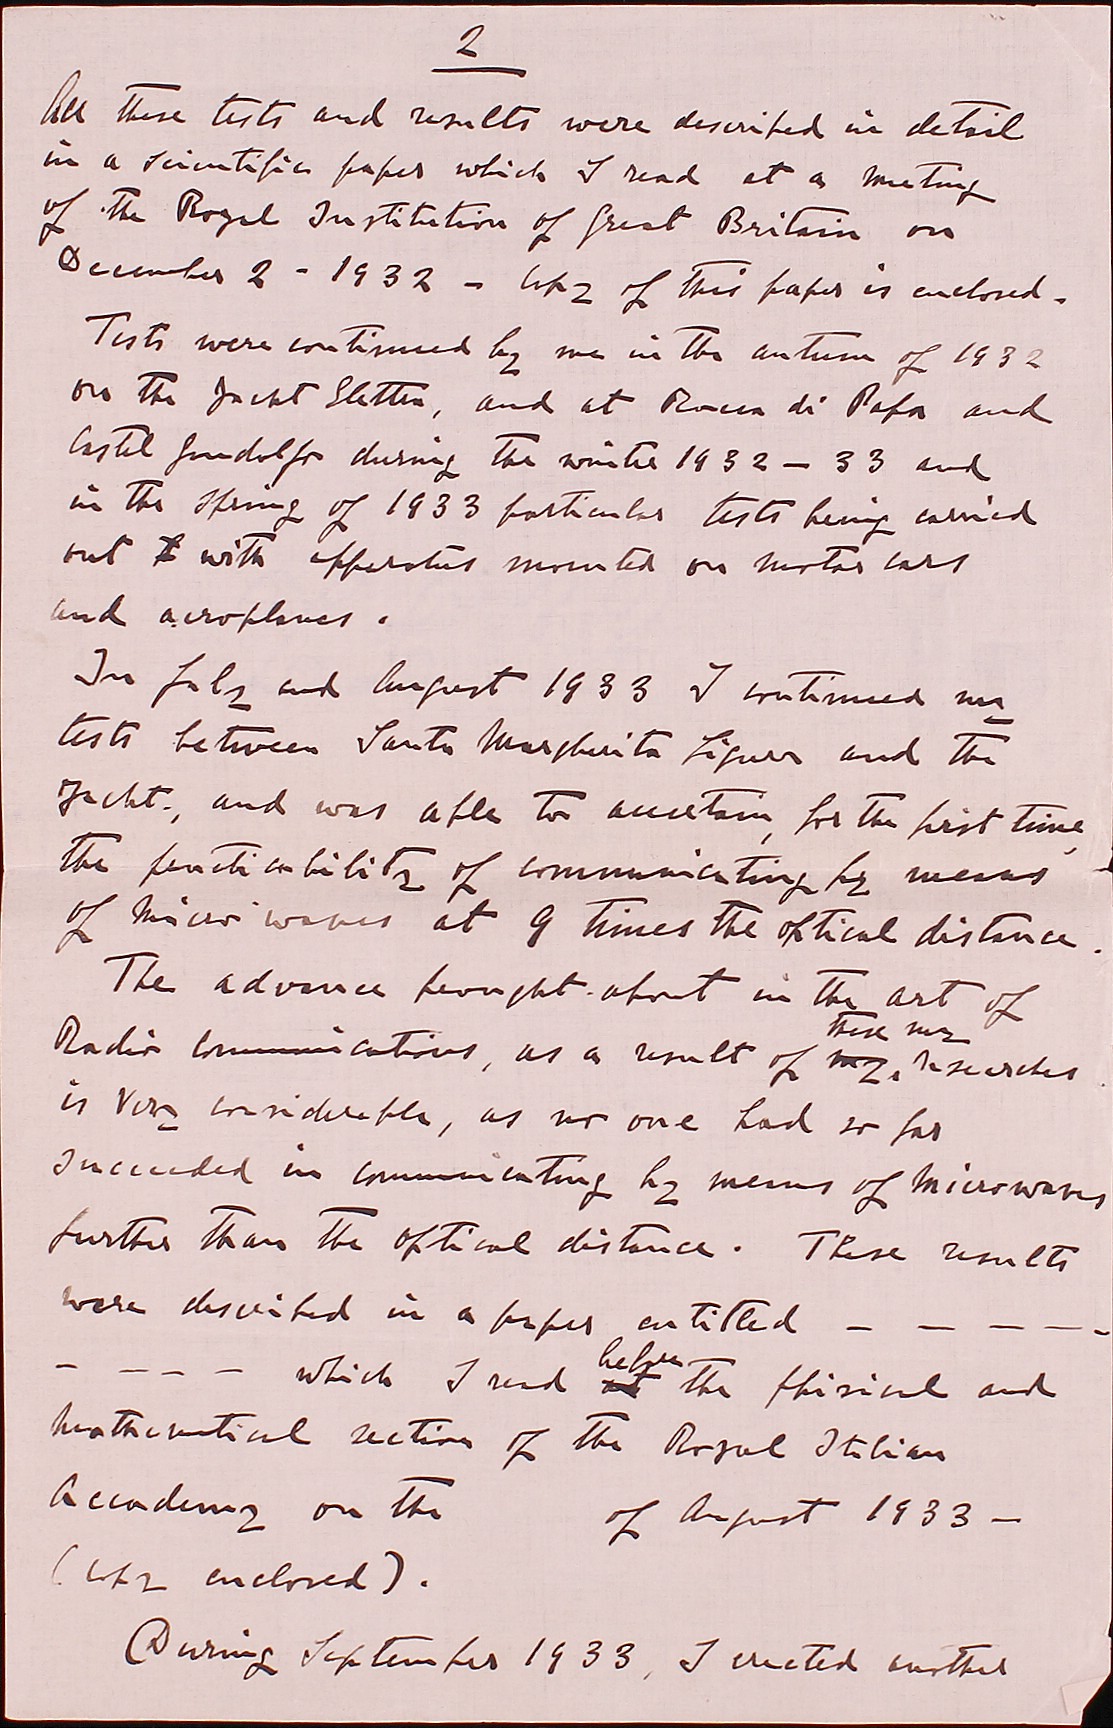 2
All these tests and results were described in detail
in a scientific paper which I read at a meeting
of the Royal Institution of Great Britain on
December 2 - 1932 - Copy of this paper is enclosed.
Tests were continued by me in the autumn of 1932
on the Yacht Elettra, and at Rocca di Papa and
Castel Gandolfo during the winter 1932 - 33 and
in the spring of 1933 particular tests being carried
out with apparatus mounted on motor cars
and aeroplanes.
In July and August 1933 I continued my
tests between Santa Margherita Ligure and the
Yacht, and was able to ascertain, for the first time,
the practicability of communicating by means
of micro waves at 9 times the optical distance.
The advance brought about in the art of
these my
Radio Communications, as a result of my researches
is very considerable, as no one had so far
succeeded in communicating by means of microwaves
further than the optical distance. These results
were described in a paper entitled - - - - -
before
- - - - which I read at the phisical and
mathematical section of the Royal Italian
Accademy on the of August 1933 -
(copy enclosed).
During September 1933, I erected another